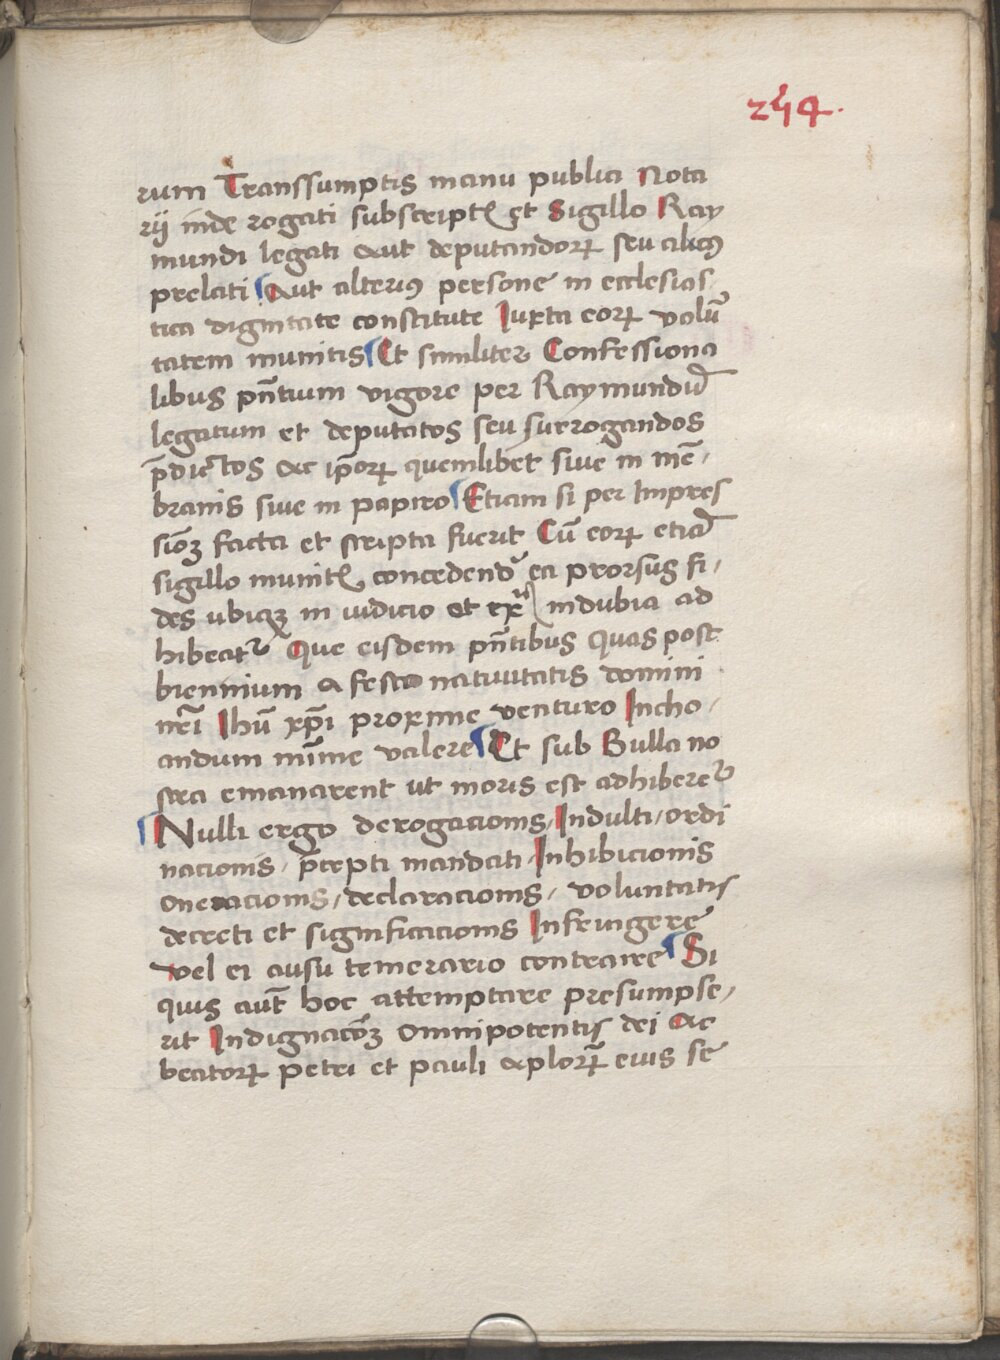 254.
rum Transsumptis manu publici Nota
rij inde rogati subscriptꝭ et Sigillo Ray
mundi legati aut deputandorꝝ seu alicuꝰ
prelati Aut alteriꝰ persone in ecclesias,
tica dignitate constitute Iuxta eorꝝ volū
tatem munitis Et similiter Confessiona
libus pn̄tium vigore per Raymundū
legatum et deputatos seu surrogandos
p̄dictos ac ip̄orꝝ quemlibet siue in mē,
branis siue in papiro Etiam si per Impres
sioꝫ facta et scripta fuerit Cū eorꝝ etiā
sigillo munitꝭ concedend ea prorsus fi,
des ubiqꝫ in iudicio et ext indubia ad
hibeat Que eisdem pn̄tibus Quas post
biennium a festo natiuitatis domini
nr̄i Ihū xp̄i proxime venturo Incho,
andum mīme valere Et sub Bulla no
stra emanarent ut moris est adhibere
Nulli ergo derogacionis, Indulti, ordi
nacionis, p̄cepti mandati, Inhibicionis
oneracionis, declaracionis, voluntatis
decreti et significacionis Infringere
vel ei ausu temerario contraire Si
quis aut̄ hoc attemptare presumpse,
rit Indignacōꝫ omnipotentis dei Ac
beatorꝝ petri et pauli aplorꝝ̄ eius se